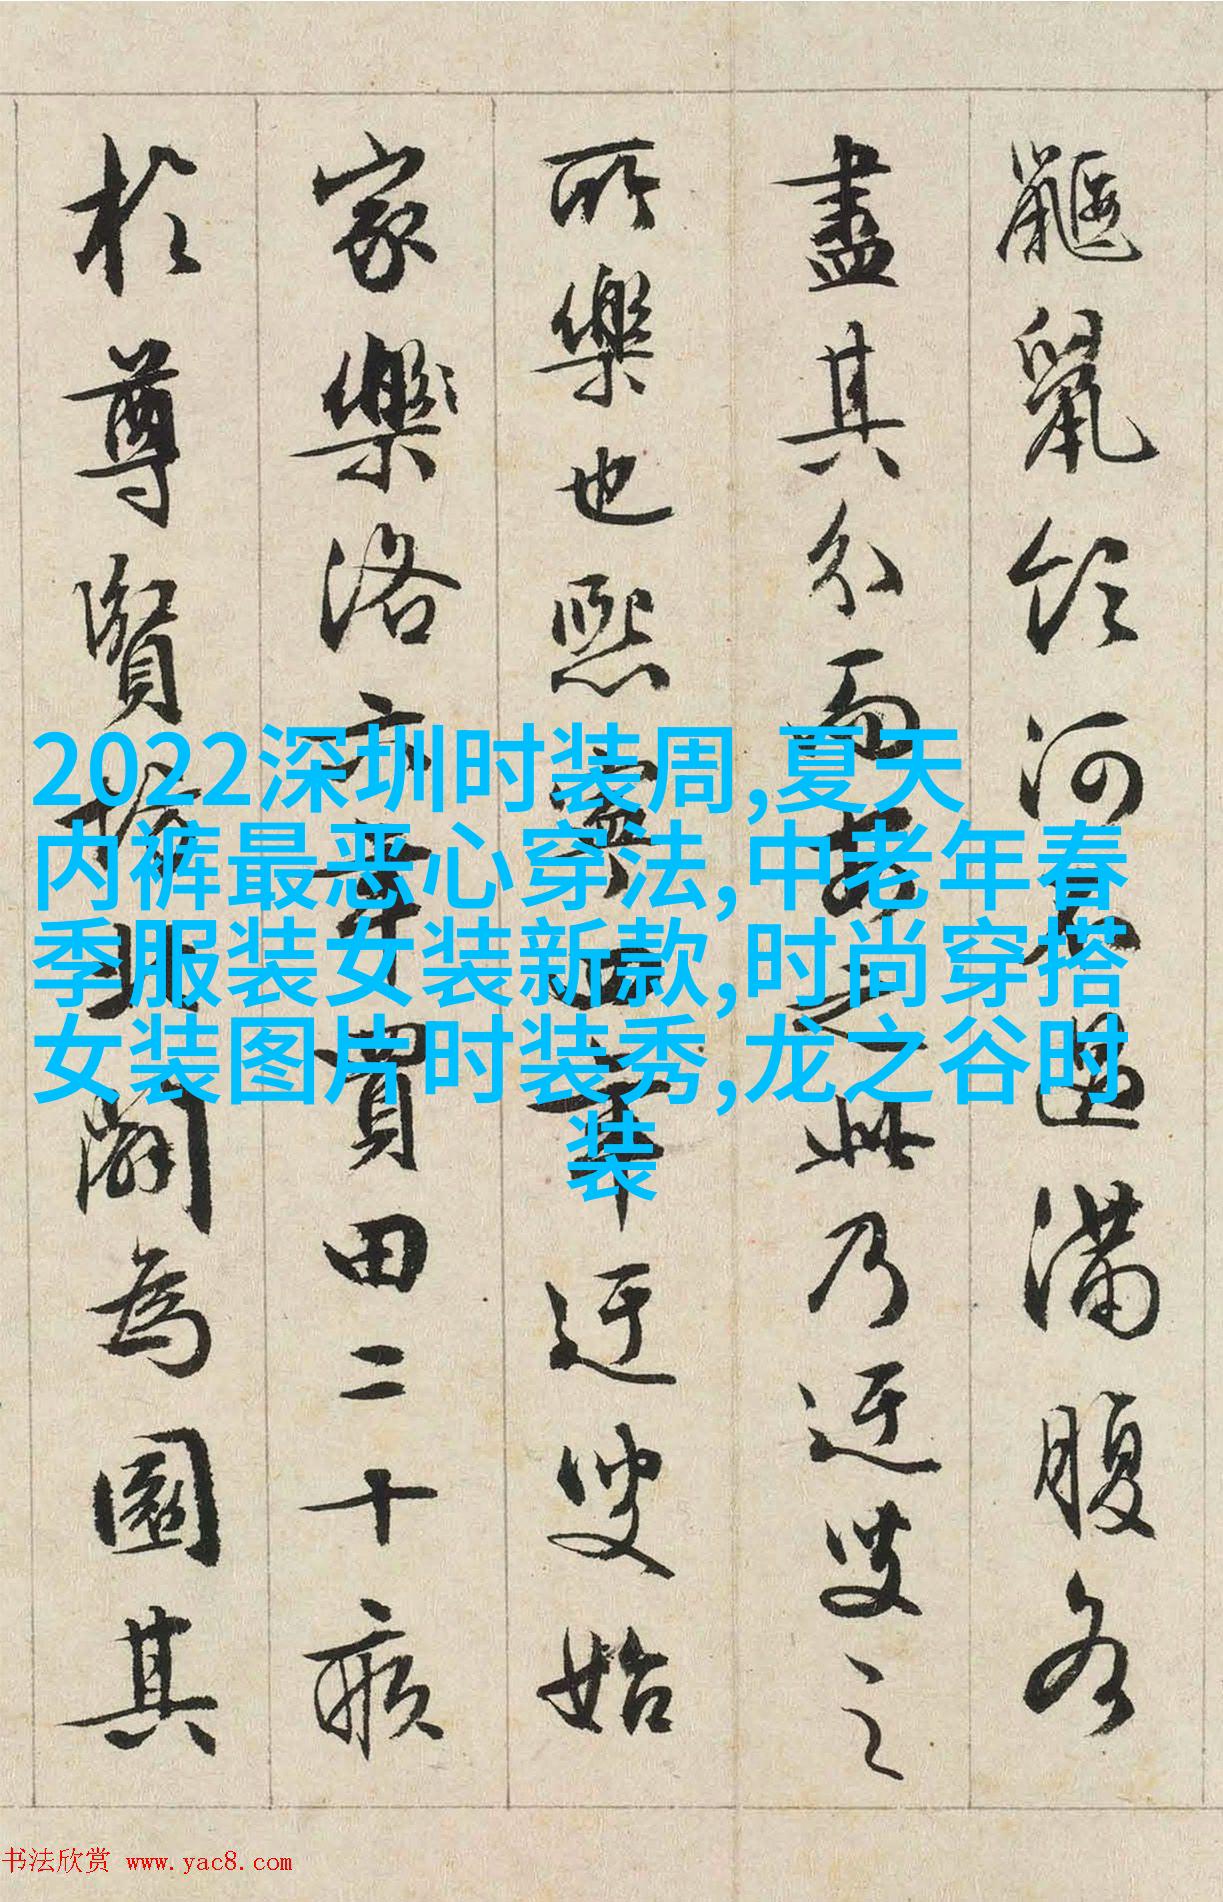 鼴鼠飲河不過滿腹各
盡其分而安之此乃迂叟之
所樂也熙寧四年迂叟始
家樂洛六年買田二十畝
於尊賢坊北闢為園其
2022深圳时装周,夏天
内裤最恶心穿法,中老年春
季服装女装新款,时尚穿搭
女装图片时装秀,龙之谷时
装
书法欣赏 www.yac8.com